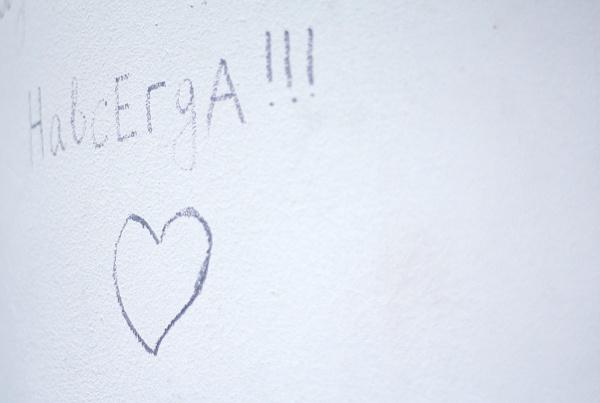 НавсЕгдА!!!